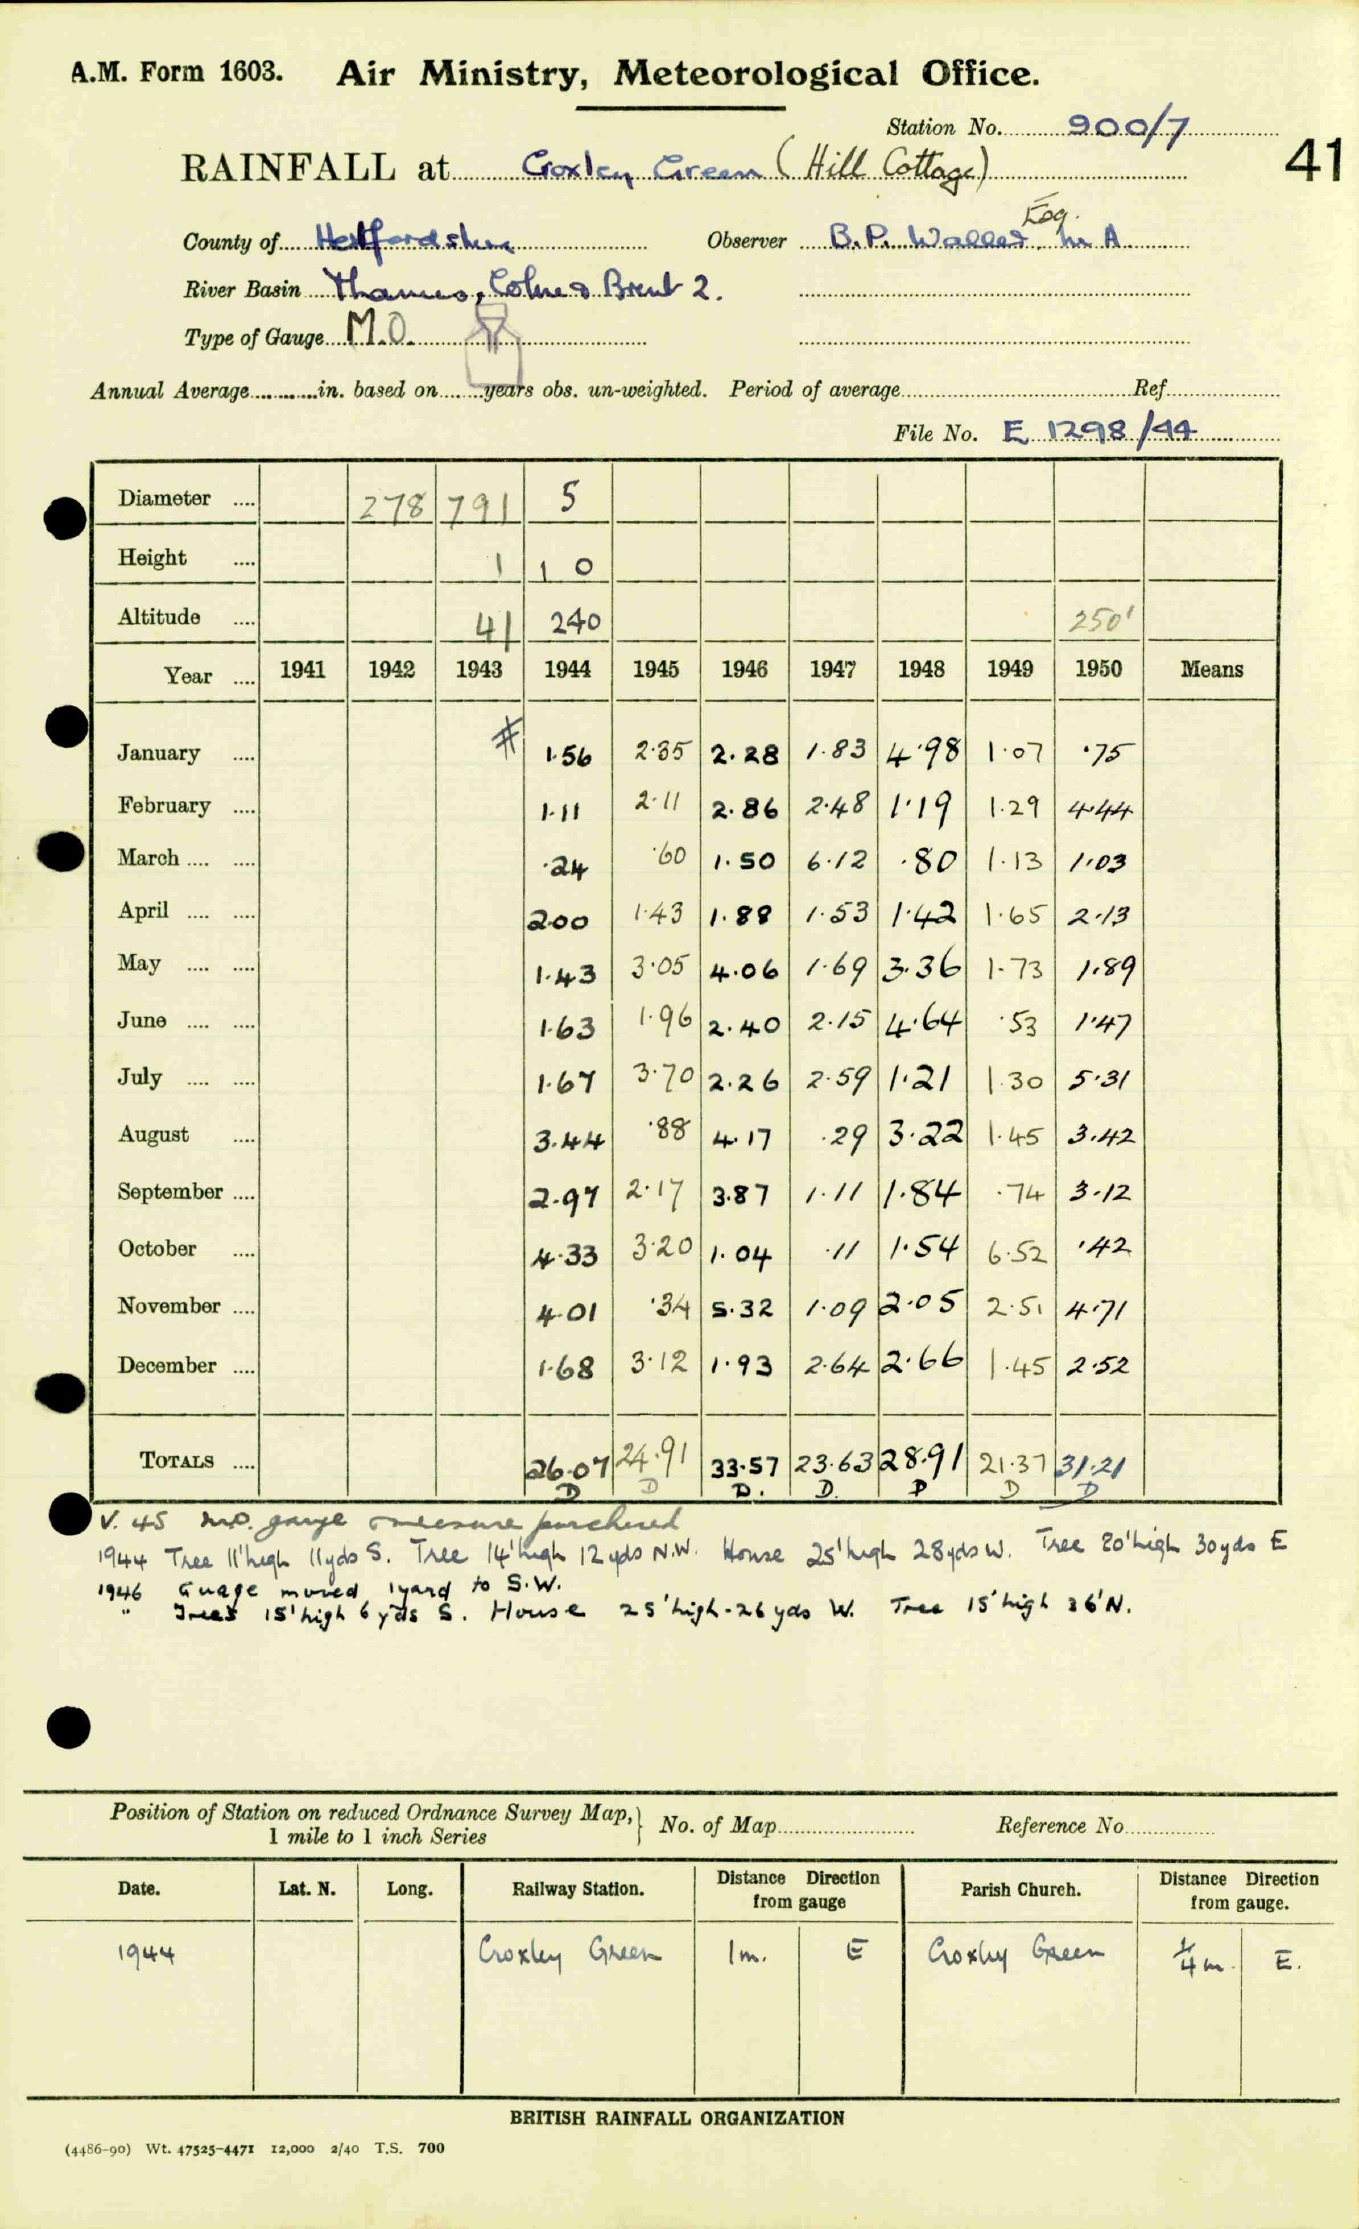 A.M. Form 1603. Air Ministry, Meteorological Office.
Station No. 900/7
41
RAINFALL at Croxley Green (Hill Cottage)
Esq.
County of Hertfordshire Observer B.P. Waller M A
River Basin Thames, Colne & Brent 2.
Type of Gauge M.O.
Annual Average in. based on years obs. un-weighted. Period of average Ref.
File No. E 1298/44
Diameter 278 791 5
Height 1 1 0
Altitude 41 240 250'
Year 1941 1942 1943 1944 1945 1946 1947 1948 1949 1950 Means
January # 1.56 2.35 2.28 1.83 4.98 1.07 .75
February 1.11 2.11 2.86 2.48 1.19 1.29 4.44
March .24 .60 1.50 6.12 .80 1.13 1.03
April 2.00 1.43 1.88 1.53 1.42 1.65 2.13
May 1.43 3.05 4.06 1.69 3.36 1.73 1.89
June 1.63 1.96 2.40 2.15 4.64 .53 1.47
July 1.67 3.70 2.26 2.59 1.21 1.30 5.31
August 3.44 .88 4.17 .29 3.22 1.45 3.42
September 2.97 2.17 3.87 1.11 1.84 .74 3.12
October 4.33 3.20 1.04 .11 1.54 6.52 .42
November 4.01 .34 5.32 1.09 2.05 2.51 4.71
December 1.68 3.12 1.93 2.64 2.66 1.45 2.52
TOTALS 26.07 24.91 33.57 23.63 28.91 21.37 31.21
D D D. D. D D D
V. 45 M.O. gauge & measure purchased
1944 Tree 11' high 11yds S. Tree 14' high 12 yds N.W. House 25' high 28yds W. Tree 20' high 30yds E
1946 Guage moved 1yard to S.W.
" Trees 15' high 6 yds S. House 25' high - 26 yds W. Tree 15' high 36' N.
Position of Station on reduced Ordnance Survey Map, 1 mile to 1 inch Series No. of Map Reference No.
Date. Lat. N. Long. Railway Station. Distance Direction from gauge Parish Church. Distance Direction from gauge.
1944 Croxley Green 1m. E Croxley Green 1/4 m. E.
BRITISH RAINFALL ORGANIZATION
(4486-90) Wt. 47525-4471 12,000 2/40 T.S. 700